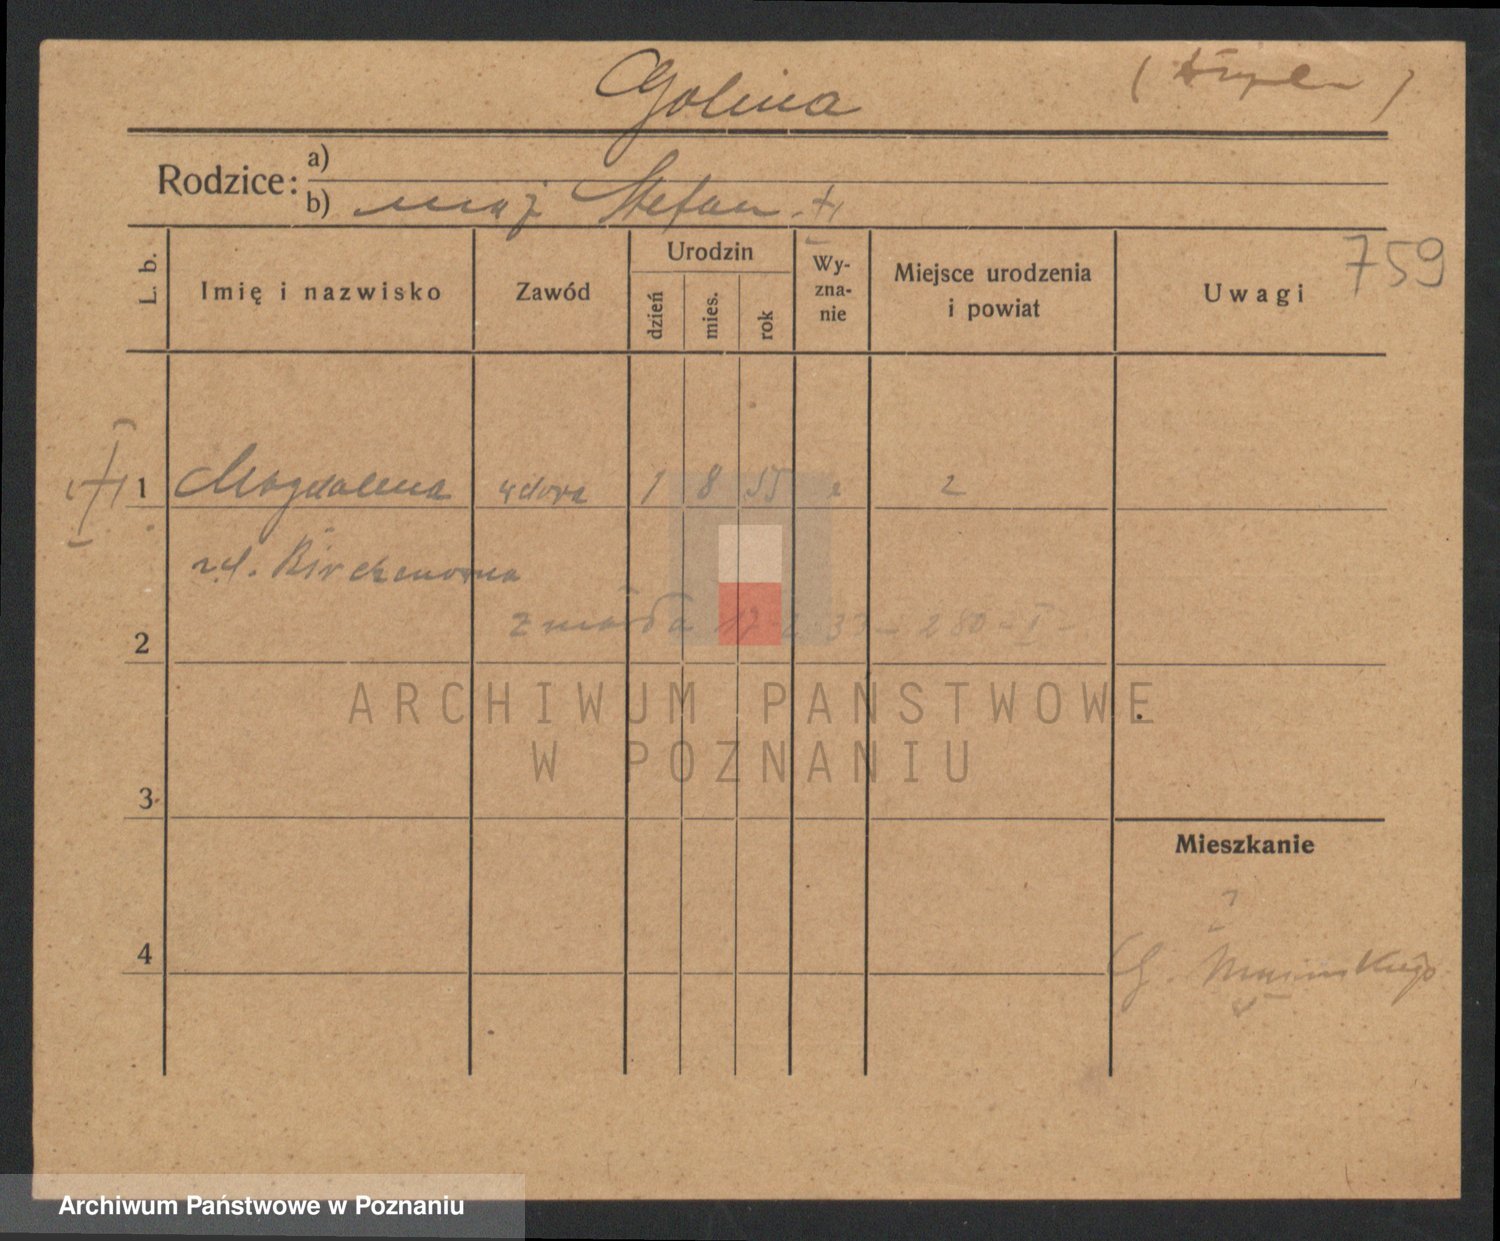 Golina
Rodzice: a)
b) mąż Stefan
759
L. b.
Imię i nazwisko
Zawód
Urodzin
dzień
mies.
rok
Wy-
zna-
nie
Miejsce urodzenia
i powiat
Uwagi
1 Magdalena wdowa 1 8 55 2
zmarła 17 2 33 - 280 - I -
2
ARCHIWUM PAŃSTWOWE
W POZNANIU
3
Mieszkanie
4
Archiwum Państwowe w Poznaniu